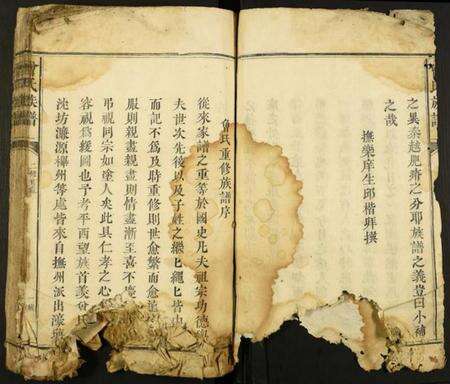 之異秦越肥瘠之分耶族譜之義豈曰小補
之哉
撫樂庠生邱楷拜撰
氏重修族譜序
從來家譜之重等於國史凡夫祖宗功德
夫世次先後以及子姓之繼匕繩匕皆由
而記不為及時重修則世愈繁而愈
服則親盡親盡則情盡漸至喜不慶
弔視同宗如塗人矣此具仁孝之心
容視為緩圖也予考平西望族首羨
沌坊濂源櫸州等處皆來自撫州派由濠
氏族譜